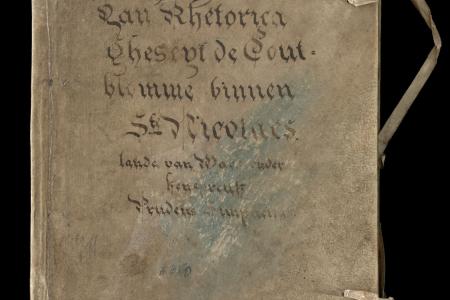 Van Rhetorica
Gheseyt de Gout=
blomme binnen
St Nicolaes
lande van Waes onder
Prudens